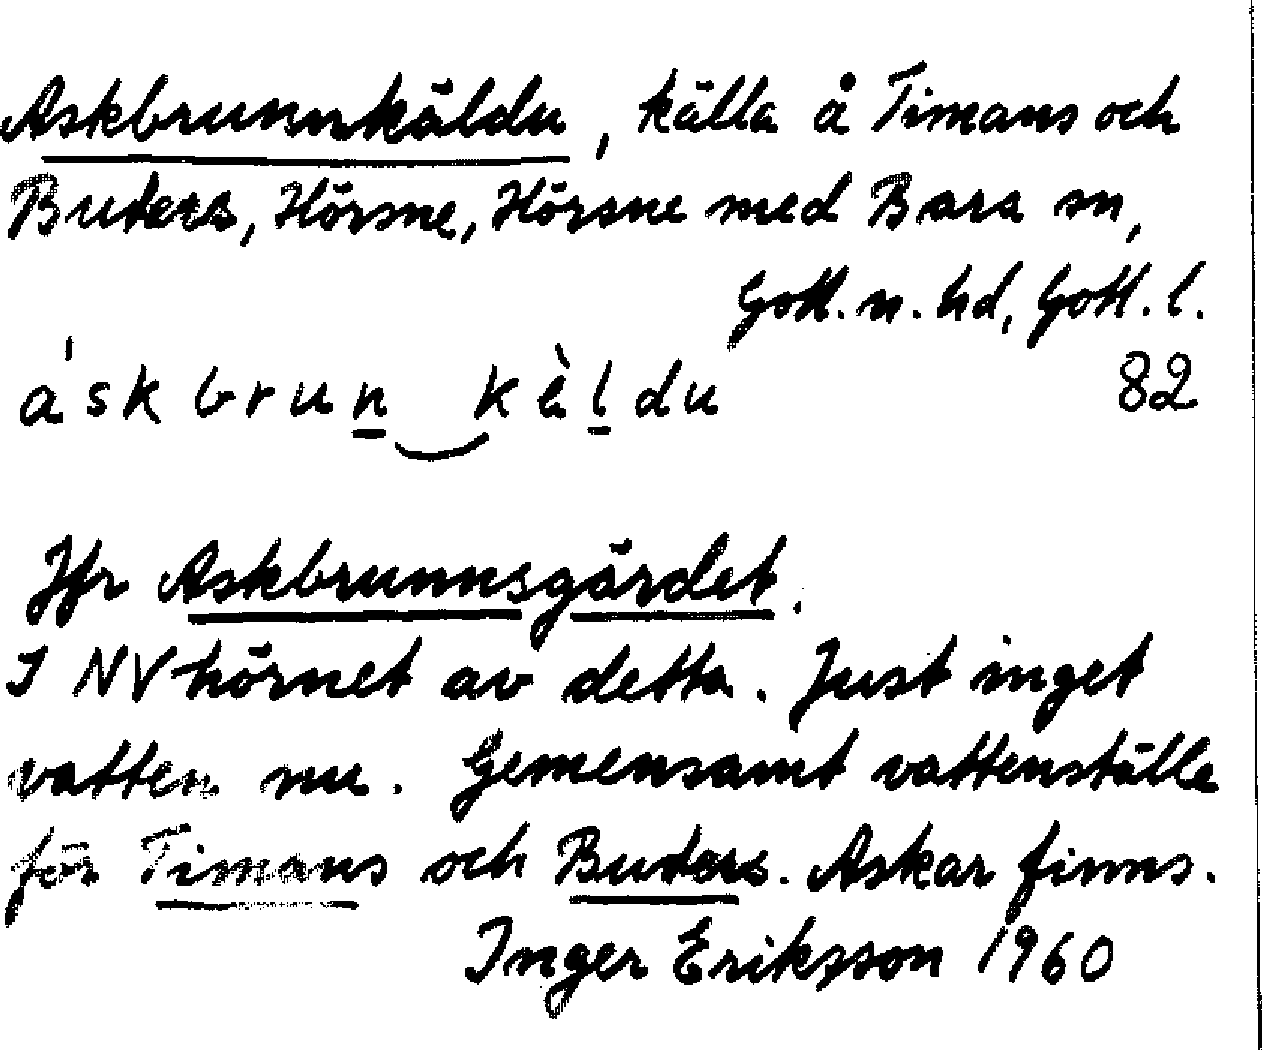 Askbrunnkäldu, källa å Timans och
Buders, Hörsne, Hörsne med Bara sn,
Gotl. n. hd, Gotl. l.
áskbrun kèldu 82
Jfr Askbrunnsgärdet.
I NV hörnet av detta. Just inget
vatten nu. Gemensamt vattenställe
för Timans och Buders. Askar finns.
Inger Eriksson 1960